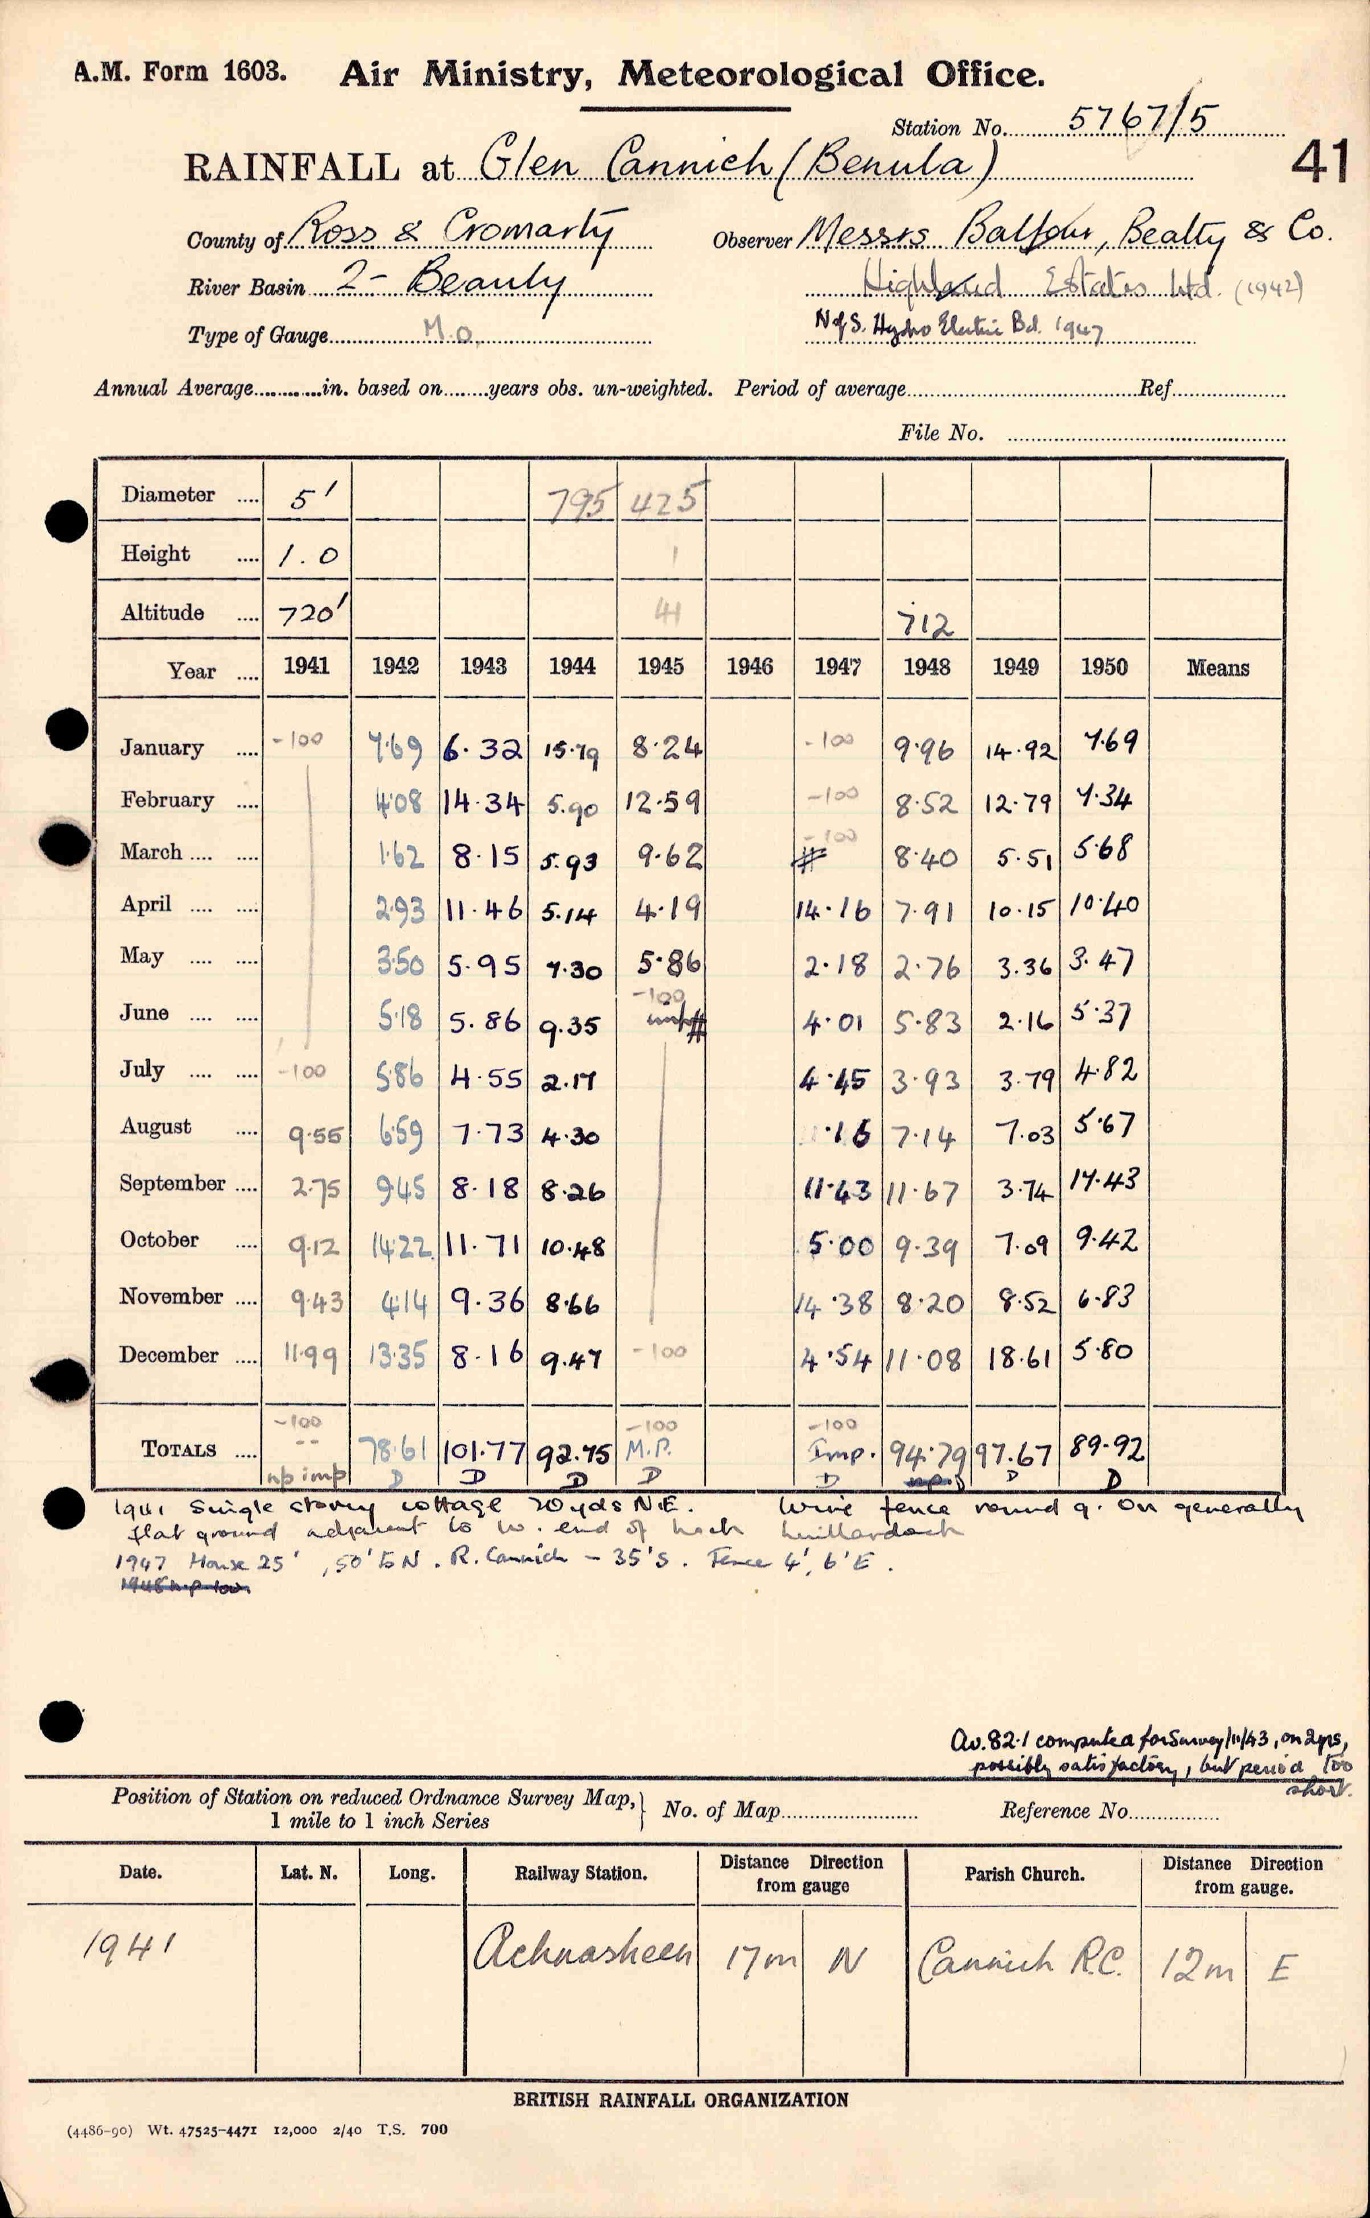 A.M. Form 1603. Air Ministry, Meteorological Office.
Station No. 5767/5
RAINFALL at Glen Cannich (Benula) 41
County of Ross & Cromarty Observer Messrs Balfour, Beatty & Co.
River Basin 2 - Beauly Highland Estates Ltd. (1942)
Type of Gauge M.O. N of S. Hydro Electric Bd. 1947
Annual Average in. based on years obs. un-weighted. Period of average Ref
File No.
Diameter 5' 795 425
Height 1.0 1
Altitude 720' 41 712
Year 1941 1942 1943 1944 1945 1946 1947 1948 1949 1950 Means
January -100 7.69 6.32 15.79 8.24 -100 9.96 14.92 7.69
February 4.08 14.34 5.90 12.59 -100 8.52 12.79 7.34
March 1.62 8.15 5.93 9.62 -100 # 8.40 5.51 5.68
April 2.93 11.46 5.14 4.19 14.16 7.91 10.15 10.40
May 3.50 5.95 7.30 5.86 2.18 2.76 3.36 3.47
June 5.18 5.86 9.35 -100 # 4.01 5.83 2.16 5.37
July -100 5.86 4.55 2.17 4.45 3.93 3.79 4.82
August 9.55 6.59 7.73 4.30 1.16 7.14 7.03 5.67
September 2.75 9.45 8.18 8.26 11.43 11.67 3.74 17.43
October 9.12 14.22 11.71 10.48 5.00 9.39 7.09 9.42
November 9.43 4.14 9.36 8.66 14.38 8.20 8.52 6.83
December 11.99 13.35 8.16 9.47 -100 4.54 11.08 18.61 5.80
-100 -100 -100
TOTALS -- 78.61 101.77 92.75 M.P. Imp. 94.79 97.67 89.92
np imp D D D D D np. D D D
1941 Single storey cottage 20 yds N.E. Wire fence round g. On generally
flat ground adjacent to W. end of Loch
1947 House 25', 50' to N. R. Cannich - 35' S. Fence 4', 6' E.
1948 n.p.
Av. 82.1 computed for Survey /11/43, on 2 yrs,
possibly satisfactory, but period too
short.
Position of Station on reduced Ordnance Survey Map, 1 mile to 1 inch Series } No. of Map Reference No.
Date. Lat. N. Long. Railway Station. Distance Direction from gauge Parish Church. Distance Direction from gauge.
1941 Achnasheen 17m N Cannich R.C. 12m E
BRITISH RAINFALL ORGANIZATION
(4486-90) Wt. 47525-4471 12,000 2/40 T.S. 700